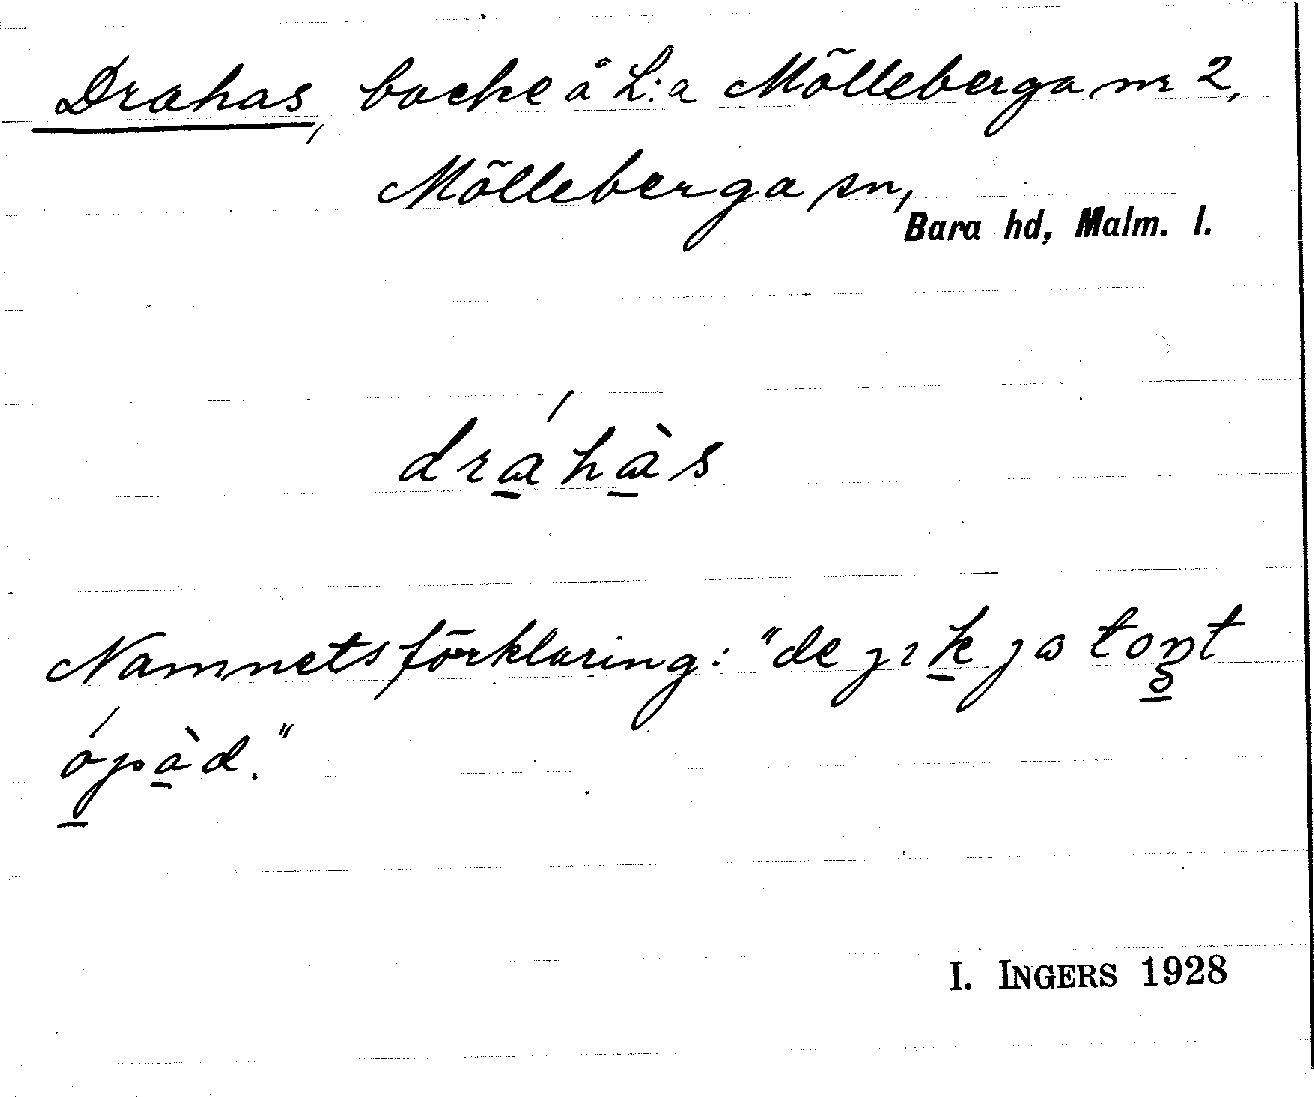 Drahas, backe å L:a Mölleberga nr 2,
Mölleberga sn,
Bara hd, Malm. l.
dráhàs
Namnets förklaring: "de
ópàd."
I. INGERS 1928